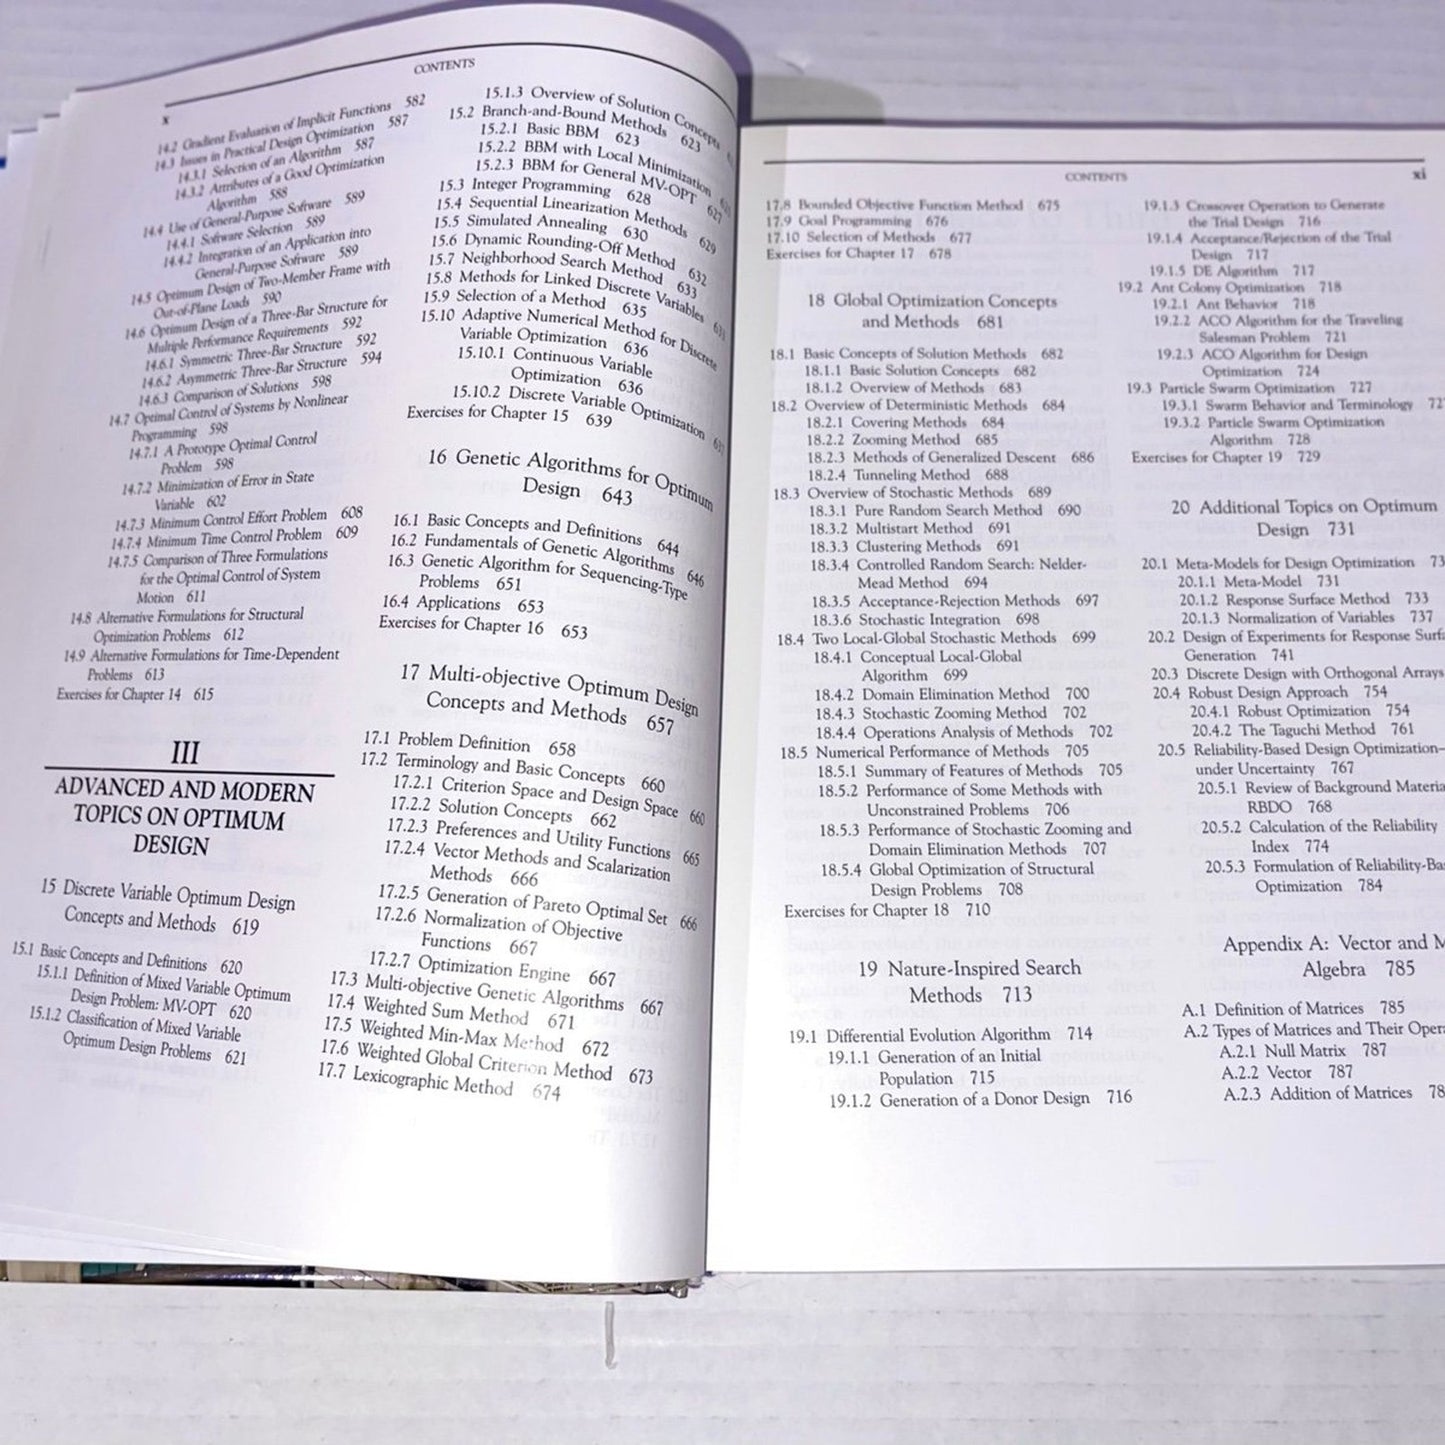 x
CONTENTS
14.2 Gradient Evaluation of Implicit Functions 582
14.3 Issues in Practical Design Optimization 587
14.3.1 Selection of an Algorithm 587
14.3.2 Attributes of a Good Optimization
Algorithm 588
14.4 Use of General-Purpose Software 589
14.4.1 Software Selection 589
14.4.2 Integration of an Application into
General-Purpose Software 589
14.5 Optimum Design of Two-Member Frame with
Out-of-Plane Loads 590
14.6 Optimum Design of a Three-Bar Structure for
Multiple Performance Requirements 592
14.6.1 Symmetric Three-Bar Structure 592
14.6.2 Asymmetric Three-Bar Structure 594
14.6.3 Comparison of Solutions 598
14.7 Optimal Control of Systems by Nonlinear
Programming 598
14.7.1 A Prototype Optimal Control
Problem 598
14.7.2 Minimization of Error in State
Variable 602
14.7.3 Minimum Control Effort Problem 608
14.7.4 Minimum Time Control Problem 609
14.7.5 Comparison of Three Formulations
for the Optimal Control of System
Motion 611
14.8 Alternative Formulations for Structural
Optimization Problems 612
14.9 Alternative Formulations for Time-Dependent
Problems 613
Exercises for Chapter 14 615
III
ADVANCED AND MODERN
TOPICS ON OPTIMUM
DESIGN
15 Discrete Variable Optimum Design
Concepts and Methods 619
15.1 Basic Concepts and Definitions 620
15.1.1 Definition of Mixed Variable Optimum
Design Problem: MV-OPT 620
15.1.2 Classification of Mixed Variable
Optimum Design Problems 621
15.1.3 Overview of Solution Concepts
15.2 Branch-and-Bound Methods 623
15.2.1 Basic BBM 623
15.2.2 BBM with Local Minimization
15.2.3 BBM for General MV-OPT 627
15.3 Integer Programming 628
15.4 Sequential Linearization Methods 629
15.5 Simulated Annealing 630
15.6 Dynamic Rounding-Off Method 632
15.7 Neighborhood Search Method 633
15.8 Methods for Linked Discrete Variables 633
15.9 Selection of a Method 635
15.10 Adaptive Numerical Method for Discrete
Variable Optimization 636
15.10.1 Continuous Variable
Optimization 636
15.10.2 Discrete Variable Optimization 637
Exercises for Chapter 15 639
16 Genetic Algorithms for Optimum
Design 643
16.1 Basic Concepts and Definitions 644
16.2 Fundamentals of Genetic Algorithms 646
16.3 Genetic Algorithm for Sequencing-Type
Problems 651
16.4 Applications 653
Exercises for Chapter 16 653
17 Multi-objective Optimum Design
Concepts and Methods 657
17.1 Problem Definition 658
17.2 Terminology and Basic Concepts 660
17.2.1 Criterion Space and Design Space 660
17.2.2 Solution Concepts 662
17.2.3 Preferences and Utility Functions 665
17.2.4 Vector Methods and Scalarization
Methods 666
17.2.5 Generation of Pareto Optimal Set 666
17.2.6 Normalization of Objective
Functions 667
17.2.7 Optimization Engine 667
17.3 Multi-objective Genetic Algorithms 667
17.4 Weighted Sum Method 671
17.5 Weighted Min-Max Method 672
17.6 Weighted Global Criterion Method 673
17.7 Lexicographic Method 674
CONTENTS
xi
17.8 Bounded Objective Function Method 675
17.9 Goal Programming 676
17.10 Selection of Methods 677
Exercises for Chapter 17 678
18 Global Optimization Concepts
and Methods 681
18.1 Basic Concepts of Solution Methods 682
18.1.1 Basic Solution Concepts 682
18.1.2 Overview of Methods 683
18.2 Overview of Deterministic Methods 684
18.2.1 Covering Methods 684
18.2.2 Zooming Method 685
18.2.3 Methods of Generalized Descent 686
18.2.4 Tunneling Method 688
18.3 Overview of Stochastic Methods 689
18.3.1 Pure Random Search Method 690
18.3.2 Multistart Method 691
18.3.3 Clustering Methods 691
18.3.4 Controlled Random Search: Nelder-
Mead Method 694
18.3.5 Acceptance-Rejection Methods 697
18.3.6 Stochastic Integration 698
18.4 Two Local-Global Stochastic Methods 699
18.4.1 Conceptual Local-Global
Algorithm 699
18.4.2 Domain Elimination Method 700
18.4.3 Stochastic Zooming Method 702
18.4.4 Operations Analysis of Methods 702
18.5 Numerical Performance of Methods 705
18.5.1 Summary of Features of Methods 705
18.5.2 Performance of Some Methods with
Unconstrained Problems 706
18.5.3 Performance of Stochastic Zooming and
Domain Elimination Methods 707
18.5.4 Global Optimization of Structural
Design Problems 708
Exercises for Chapter 18 710
19 Nature-Inspired Search
Methods 713
19.1 Differential Evolution Algorithm 714
19.1.1 Generation of an Initial
Population 715
19.1.2 Generation of a Donor Design 716
19.1.3 Crossover Operation to Generate
the Trial Design 716
19.1.4 Acceptance/Rejection of the Trial
Design 717
19.1.5 DE Algorithm 717
19.2 Ant Colony Optimization 718
19.2.1 Ant Behavior 718
19.2.2 ACO Algorithm for the Traveling
Salesman Problem 721
19.2.3 ACO Algorithm for Design
Optimization 724
19.3 Particle Swarm Optimization 727
19.3.1 Swarm Behavior and Terminology 72
19.3.2 Particle Swarm Optimization
Algorithm 728
Exercises for Chapter 19 729
20 Additional Topics on Optimum
Design 731
20.1 Meta-Models for Design Optimization 73
20.1.1 Meta-Model 731
20.1.2 Response Surface Method 733
20.1.3 Normalization of Variables 737
20.2 Design of Experiments for Response Surfa
Generation 741
20.3 Discrete Design with Orthogonal Arrays
20.4 Robust Design Approach 754
20.4.1 Robust Optimization 754
20.4.2 The Taguchi Method 761
20.5 Reliability-Based Design Optimization—
under Uncertainty 767
20.5.1 Review of Background Materia
RBDO 768
20.5.2 Calculation of the Reliability
Index 774
20.5.3 Formulation of Reliability-Ba
Optimization 784
Appendix A: Vector and M
Algebra 785
A.1 Definition of Matrices 785
A.2 Types of Matrices and Their Oper
A.2.1 Null Matrix 787
A.2.2 Vector 787
A.2.3 Addition of Matrices 78